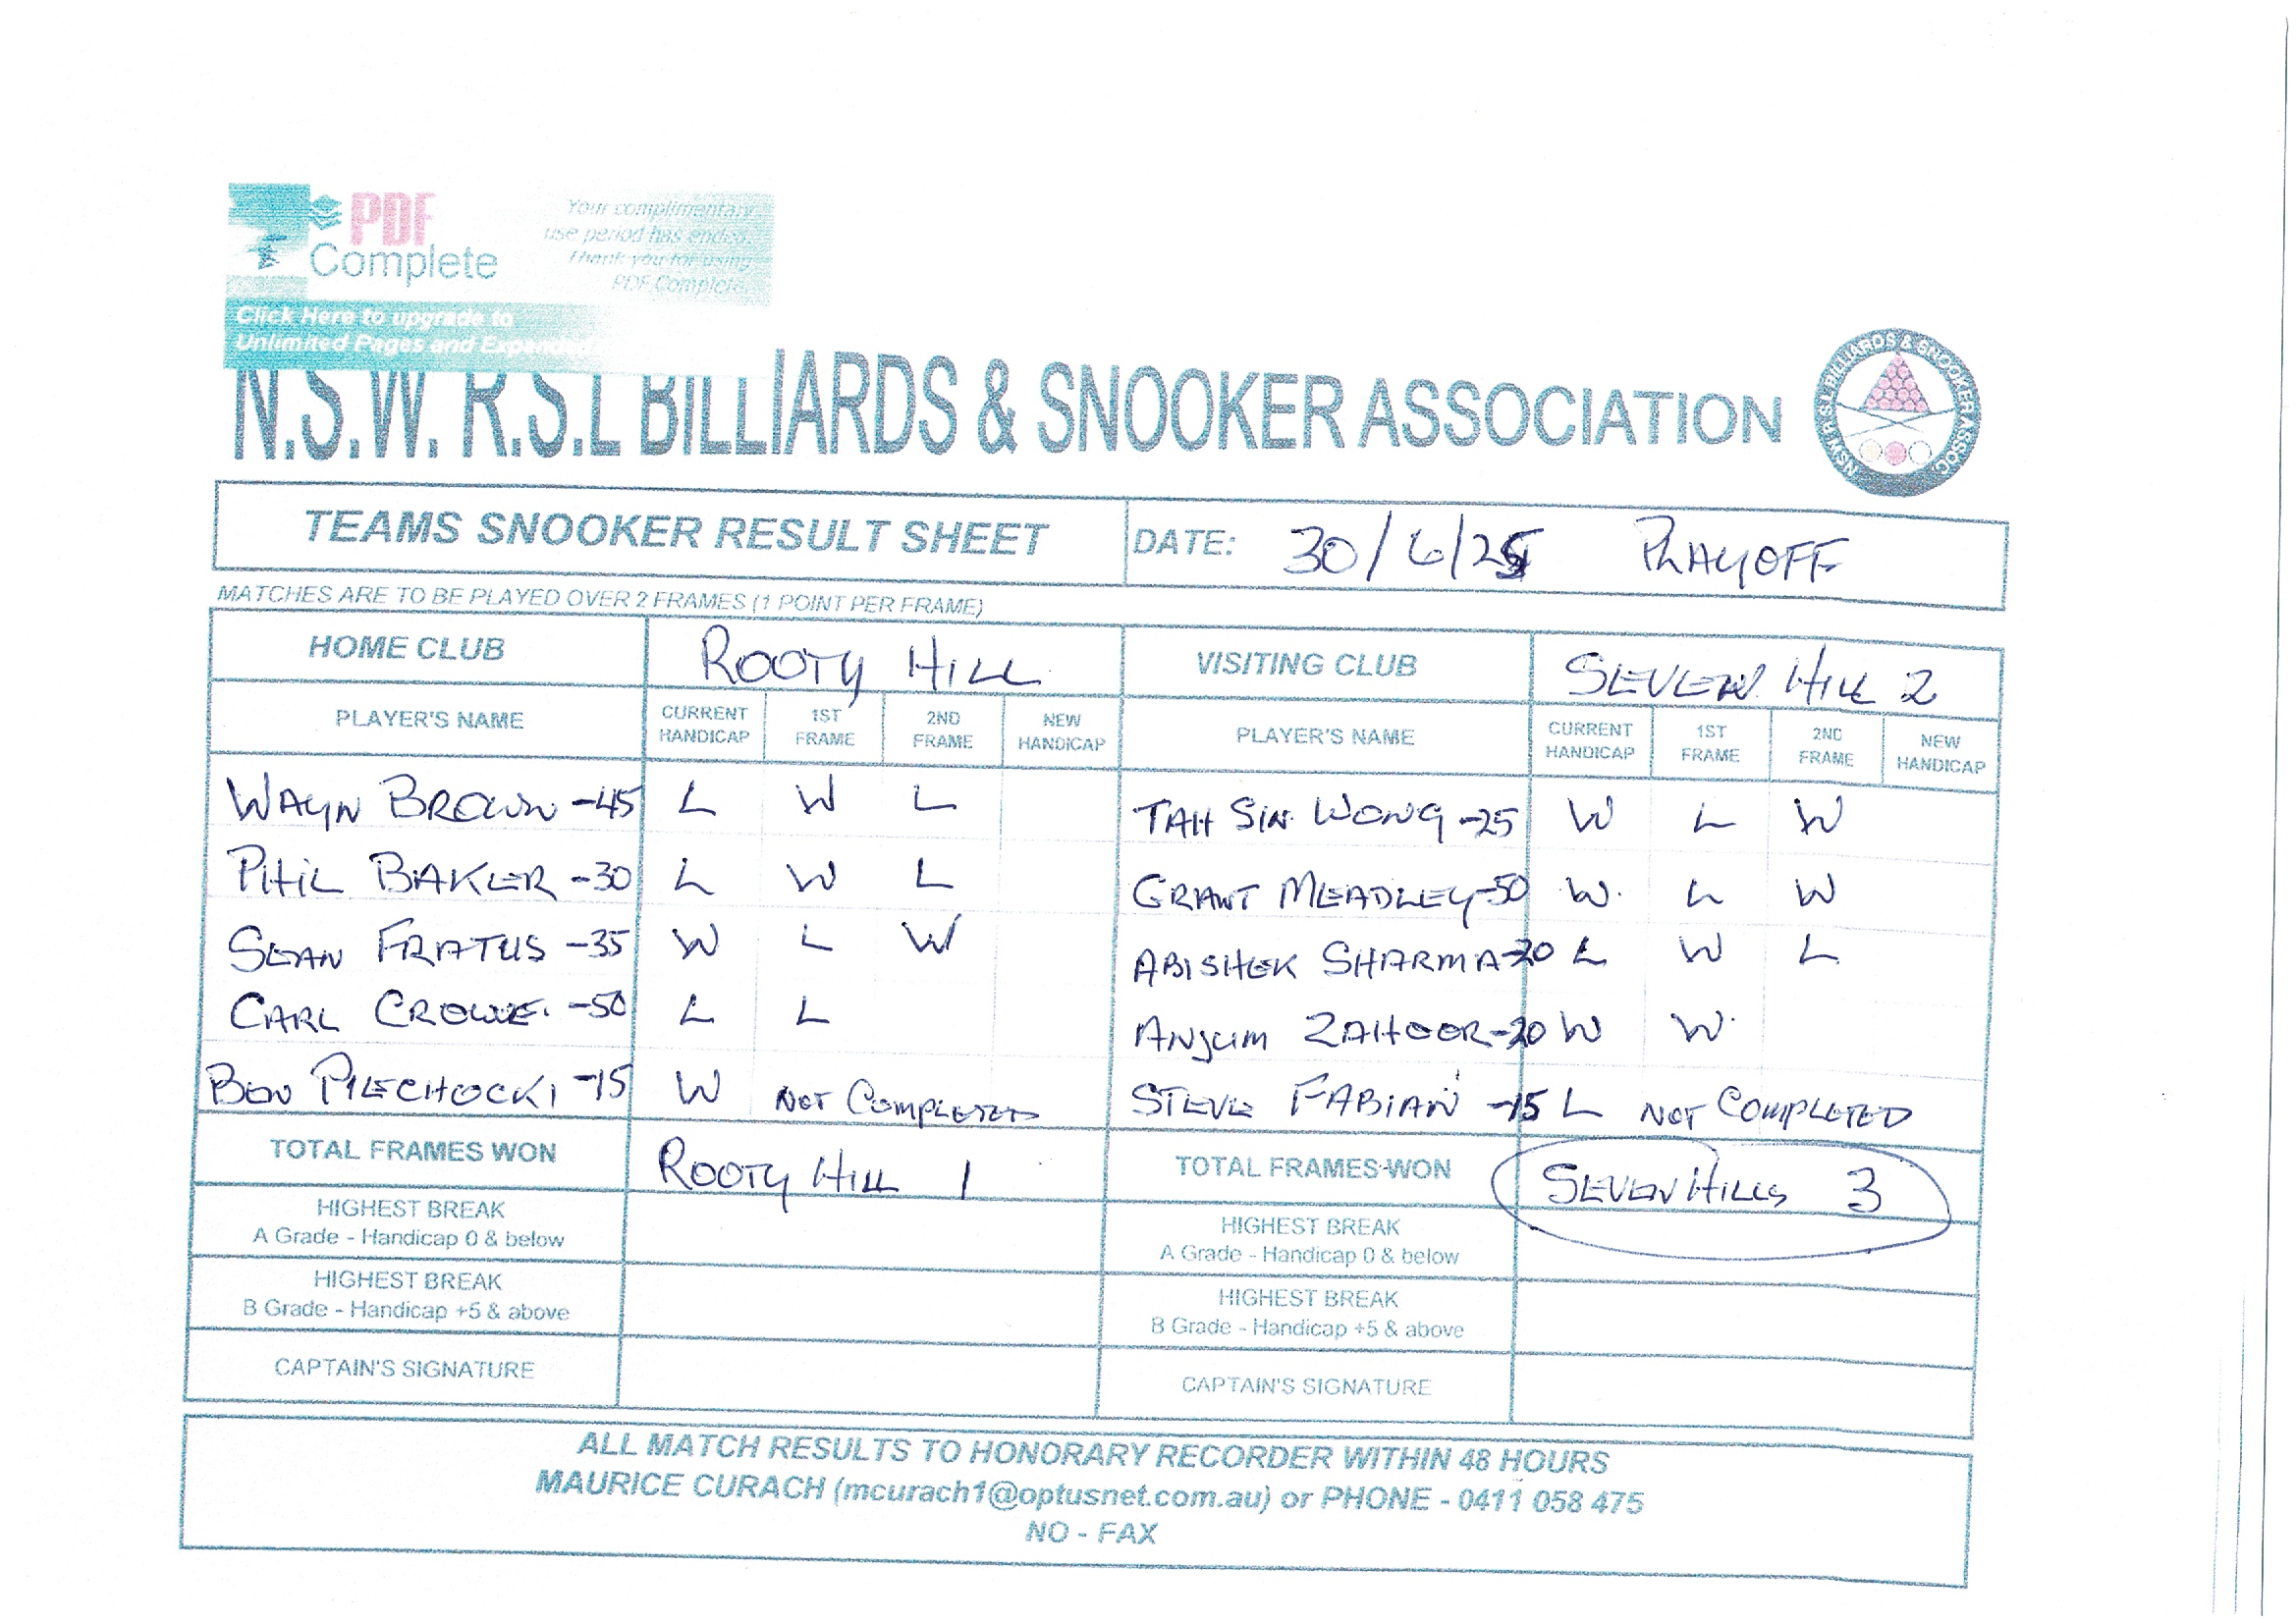 PDF Complete
Your complimentary
use period has ended.
Thank you for using
PDF Complete.
Click Here to upgrade to
Unlimited Pages and Expanded
N.S.W. R.S.L BILLIARDS & SNOOKER ASSOCIATION
NSW R S L BILLIARDS & SNOOKER ASSOC.
TEAMS SNOOKER RESULT SHEET DATE: 30/6/25 PLAYOFF
MATCHES ARE TO BE PLAYED OVER 2 FRAMES (1 POINT PER FRAME)
HOME CLUB ROOTY HILL VISITING CLUB SEVEN HILL 2
PLAYER'S NAME CURRENT HANDICAP 1ST FRAME 2ND FRAME NEW HANDICAP PLAYER'S NAME CURRENT HANDICAP 1ST FRAME 2ND FRAME NEW HANDICAP
WAYN BROWN -45 L W L TAH SIN WONG -25 W L W
PHIL BAKER -30 L W L GRANT MEADLEY -50 W L W
SEAN FRATUS -35 W L W ABISHEK SHARMA -20 L W L
CARL CROWE -50 L L ANJUM ZAHOOR -20 W W
BON PILECHOCKI -15 W NOT COMPLETED STEVE FABIAN -15 L NOT COMPLETED
TOTAL FRAMES WON ROOTY HILL 1 TOTAL FRAMES WON SEVEN HILLS 3
HIGHEST BREAK A Grade - Handicap 0 & below HIGHEST BREAK A Grade - Handicap 0 & below
HIGHEST BREAK B Grade - Handicap +5 & above HIGHEST BREAK B Grade - Handicap +5 & above
CAPTAIN'S SIGNATURE CAPTAIN'S SIGNATURE
ALL MATCH RESULTS TO HONORARY RECORDER WITHIN 48 HOURS
MAURICE CURACH (mcurach1@optusnet.com.au) or PHONE - 0411 058 475
NO - FAX